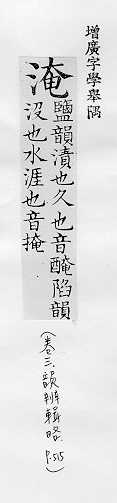 增廣字學舉隅
淹
鹽韻漬也久也音醃陷韻
沒也水涯也音掩
(卷三、韻辨輯略 P.515)